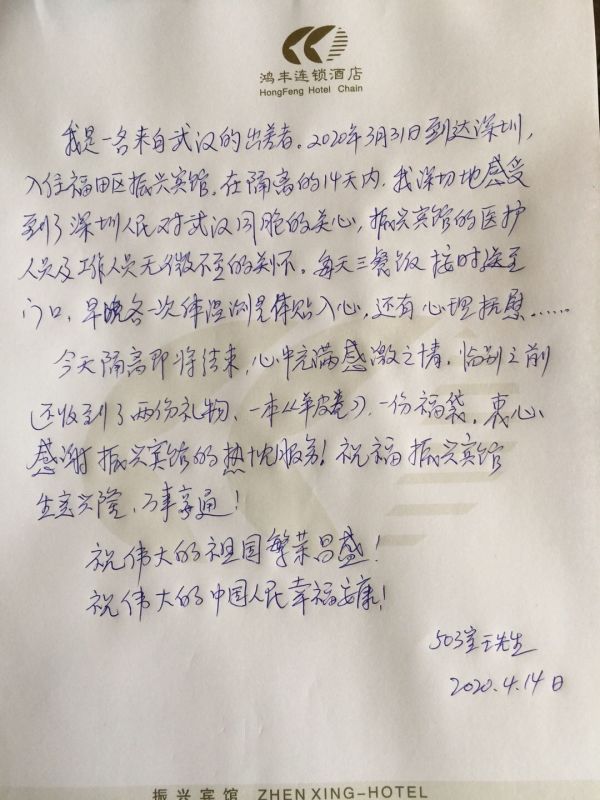 鸿丰连锁酒店
HongFeng Hotel Chain
我是一名来自武汉的出差者。2020年3月31日到达深圳，
入住福田区振兴宾馆。在隔离的14天内，我深切地感受
到了深圳人民对武汉同胞的关心，振兴宾馆的医护
人员及工作人员无微不至的关怀。每天三餐饭按时送至
门口，早晚各一次体温测量体贴入心，还有心理抚慰……
今天隔离即将结束，心中充满感激之情。临别之前
还收到了两份礼物、一本《羊皮卷》，一份福袋。衷心
感谢振兴宾馆的热忱服务！祝福振兴宾馆
生意兴隆，万事亨通！
祝伟大的祖国繁荣昌盛！
祝伟大的中国人民幸福安康！
503室王先生
2020.4.14日
振兴宾馆 ZHENXING-HOTEL